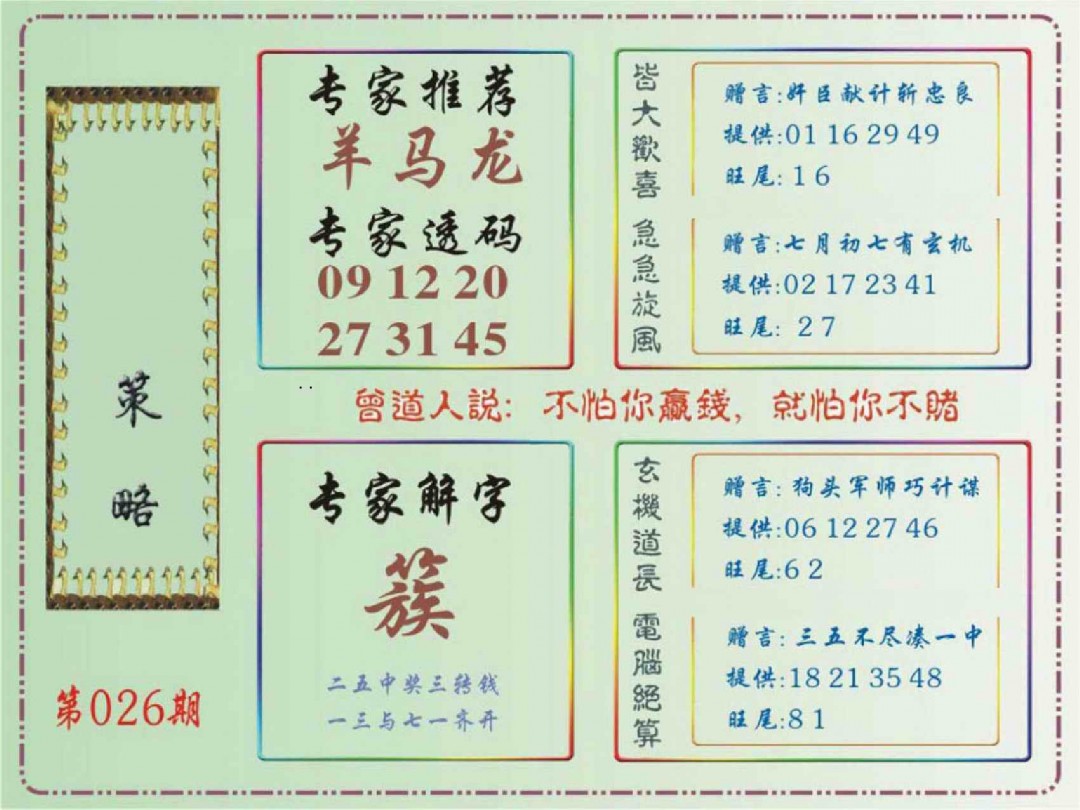 策略
第026期
专家推荐
羊马龙
专家透码
09 12 20
27 31 45
皆大歡喜
赠言:奸臣献计斩忠良
提供:01 16 29 49
旺尾:16
急急旋風
赠言:七月初七有玄机
提供:02 17 23 41
旺尾: 27
曾道人説: 不怕你贏錢, 就怕你不賭
专家解字
簇
二五中奖三转钱
一三与七一齐开
玄機道長
赠言: 狗头军师巧计谋
提供:06 12 27 46
旺尾:62
電腦絕算
赠言: 三五不尽凑一中
提供:18 21 35 48
旺尾:81